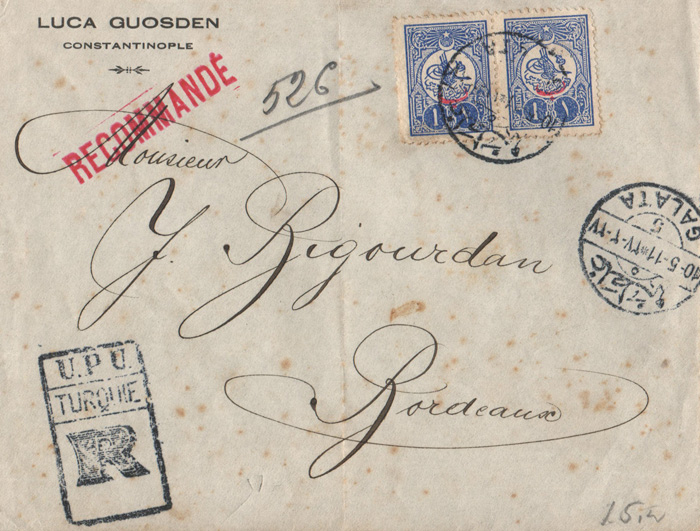 LUCA GUOSDEN
CONSTANTINOPLE
RECOMMANDÉ
526
1 ١
1 ١
Monsieur
J. Rigourdan
Bordeaux
GALATA
5
10-5-11
U.P.U.
TURQUIE
R